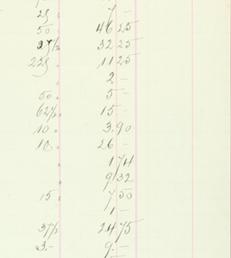 25.
50 46 25
37½ 32 25
22½ 11 25
2 –
50. 5 –
62½. 15 –
10. 3.90
10. 26 –
1 74
9 32
15. 7 50
1 –
37½ 24 75
3.– 9.–